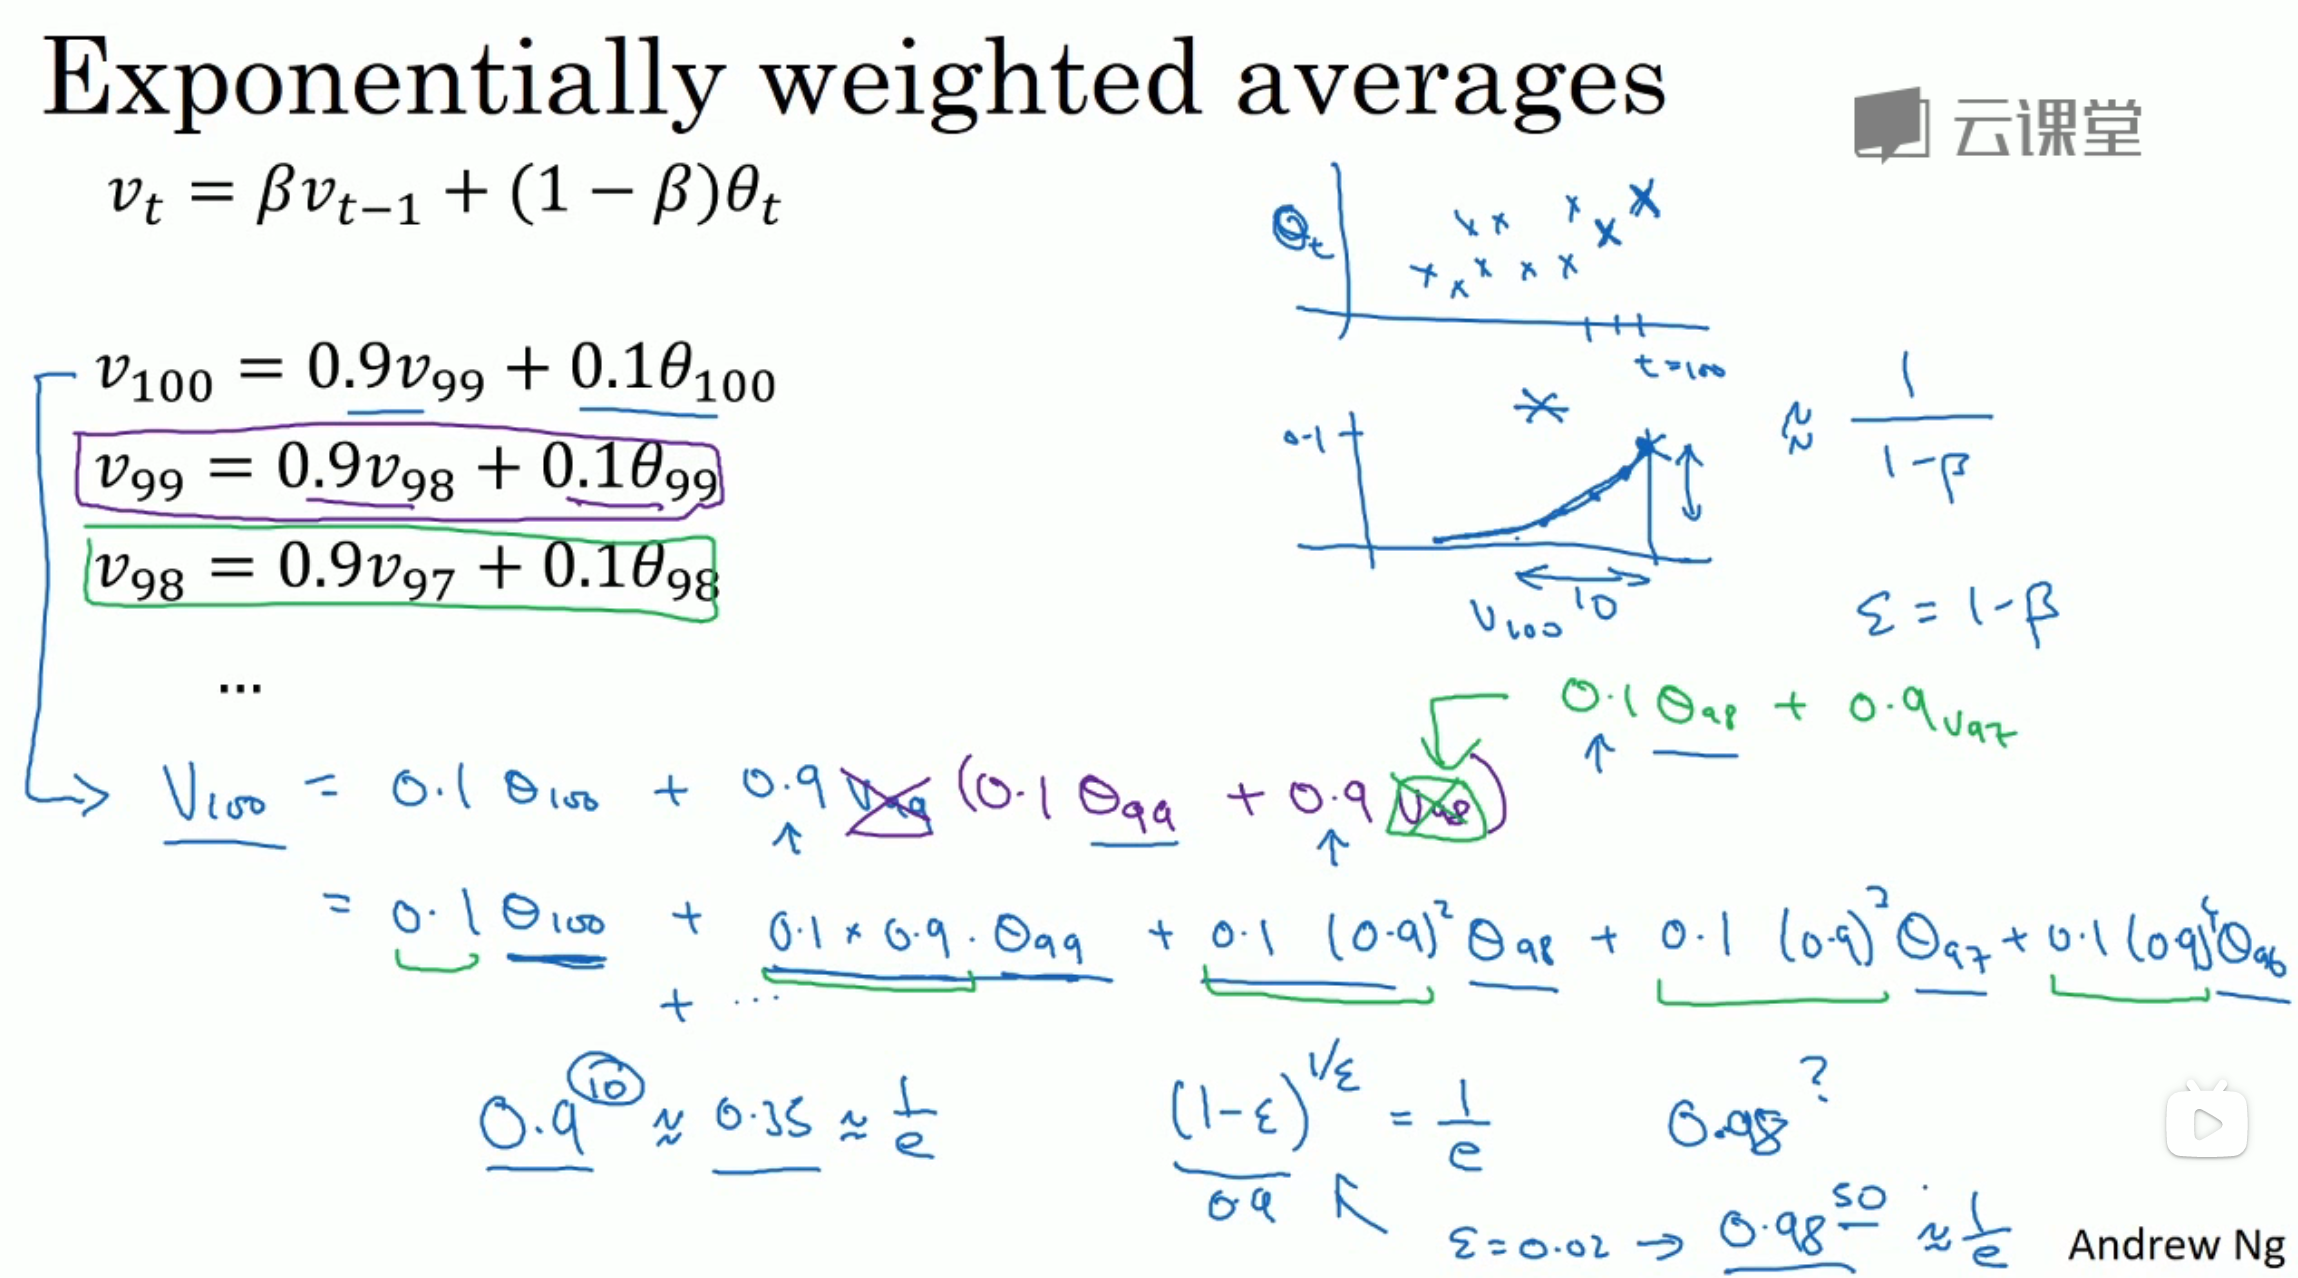 Exponentially weighted averages
云课堂
v_t = βv_{t−1} + (1 − β)θ_t
θ_t
t=100
v_100 = 0.9v_99 + 0.1θ_100
v_99 = 0.9v_98 + 0.1θ_99
v_98 = 0.9v_97 + 0.1θ_98
...
0.1
10
V_100
≈ 1/(1-β)
ε = 1-β
0.1 θ_98 + 0.9 V_97
V_100 = 0.1 θ_100 + 0.9 V_99 (0.1 θ_99 + 0.9 V_98)
= 0.1 θ_100 + 0.1 × 0.9 · θ_99 + 0.1 (0.9)^2 θ_98 + 0.1 (0.9)^3 θ_97 + 0.1 (0.9)^4 θ_96
+ ...
0.9^10 ≈ 0.35 ≈ 1/e
(1-ε)^{1/ε} = 1/e
0.9
0.98^?
ε = 0.02 → 0.98^50 ≈ 1/e
Andrew Ng